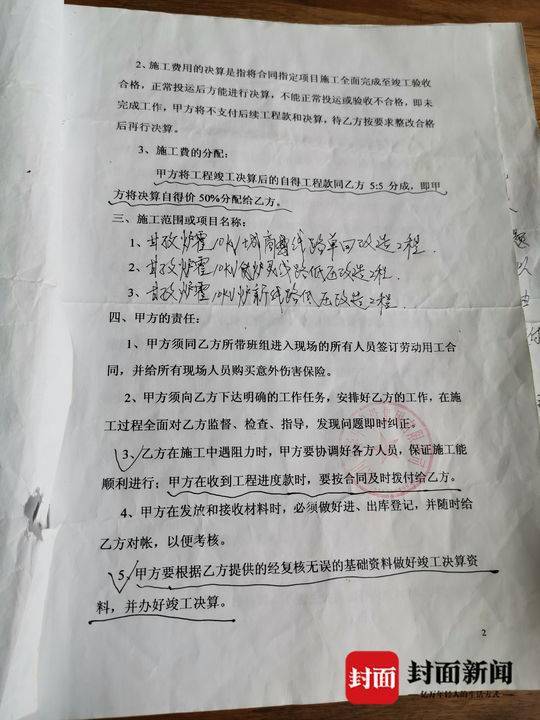 2、施工费用的决算是指将合同指定项目施工全面完成至竣工验收
合格，正常投运后方能进行决算，不能正常投运或验收不合格，即未
完成工作，甲方将不支付后续工程款和决算，待乙方按要求整改合格
后再行决算。
3、施工費的分配：
甲方将工程竣工决算后的自得工程款同乙方 5:5 分成，即甲
方将决算自得价 50%分配给乙方。
三、施工范围或项目名称：
1、甘孜炉霍10KV城 线路单回改造工程.
2、甘孜炉霍10KV 线路低压改造工程.
3、甘孜炉霍10KV炉新线路低压改造工程.
四、甲方的责任：
1、甲方须同乙方所带班组进入现场的所有人员签订劳动用工合
同，并给所有现场人员购买意外伤害保险。
2、甲方须向乙方下达明确的工作任务，安排好乙方的工作，在施
工过程全面对乙方监督、检查、指导，发现问题即时纠正。
3、乙方在施工中遇阻力时，甲方要协调好各方人员，保证施工能
顺利进行；甲方在收到工程进度款时，要按合同及时拨付给乙方。
4、甲方在发放和接收材料时，必须做好进、出库登记，并随时给
乙方对帐，以便考核。
5、甲方要根据乙方提供的经复核无误的基础资料做好竣工决算资
料，并办好竣工决算。
2
封面 封面新闻
亿万年轻人的生活方式